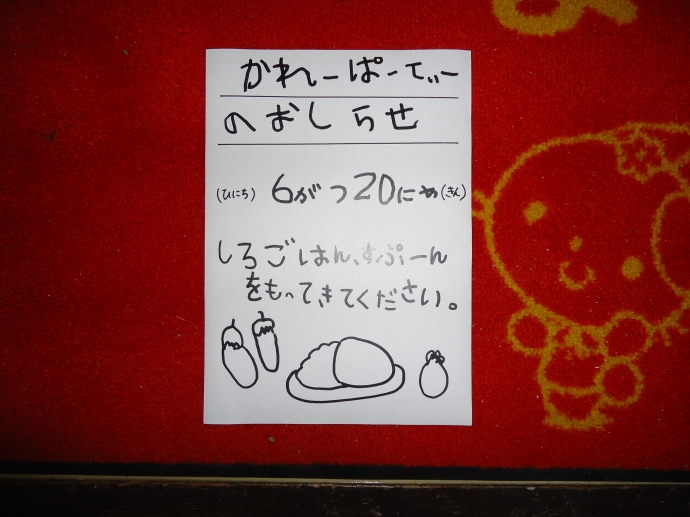 かれーぱーてぃー
のおしらせ
(ひにち) 6がつ20にち(きん)
しろごはん、すぷーん
をもってきてください。